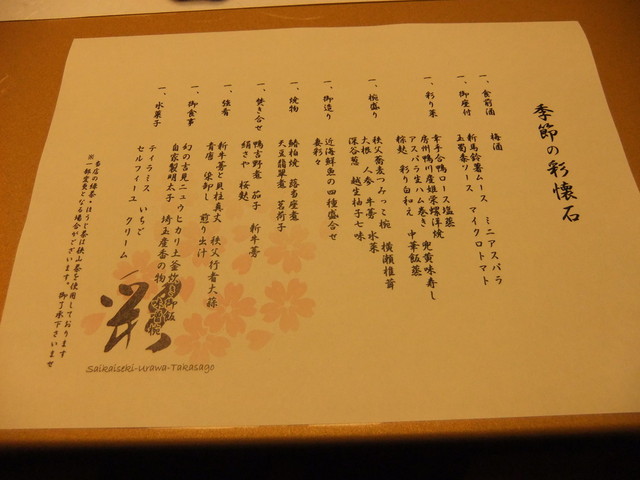 季節の彩懐石
一、食前酒　梅酒
一、御座付　新馬鈴薯ムース　ミニアスパラ
玉蜀黍ソース　マイクロトマト
一、彩り菜　幸手合鴨ロース塩蒸　兜黄味寿し
房州鴨川産姐栄螺洋焼
アスパラ生ハム巻き　中華飯蒸
粽麩　彩り白和え
一、椀盛り　秩父蕎麦つみっこ椀　横瀬椎茸
大根　人参　牛蒡　水菜
深谷葱　越生柚子七味
一、御造り　近海鮮魚の四種盛合せ
妻彩々
一、焼物　鰆柏焼　蕗当座煮
大豆翡翠煮　茗荷子
一、焚き合せ　鴨吉野煮　茄子　新牛蒡
絹さや　桜麩
一、強肴　新牛蒡と貝柱真丈　秩父行者大蒜
青唐　染卸し　煎り出汁
一、御食事　幻の吉見ニュウヒカリ土釜炊き御飯
自家製明太子　埼玉産香の物
一、水菓子　ティラミス　いちご
セルフィーユ　クリーム
※当店の緑茶・ほうじ茶は狭山茶を使用しております
一部変更となる場合がございます。御了承下さいませ
彩
Saikaiseki-Urawa-Takasago